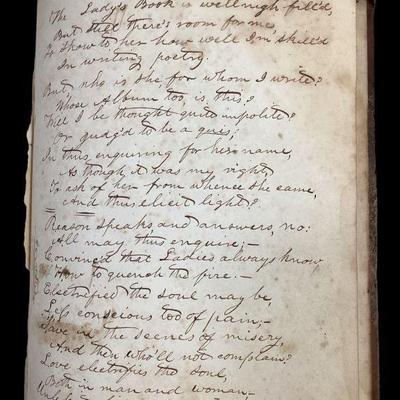 The Lady's Book is well nigh fill'd,
But still there's room for me,
To show to her how well I'm skill'd
In writing poetry.
But, who is she for whom I write?
Whose Album too, is this?
Will I be thought quite impolite?
Or quag'd to be a quis;
In thus enquiring for her name,
As though it was my right,
To ask of her from whence she came,
And thus elicit light?
Reason speaks, and answers, no:
All may thus enquire;—
Convinced that Ladies always know
How to quench the fire.—
Electrified the soul may be,
conscious too of pain;—
Save in the scenes of misery,
And then who'll not complain?
Love electrifies the soul,
Both in man and woman,—